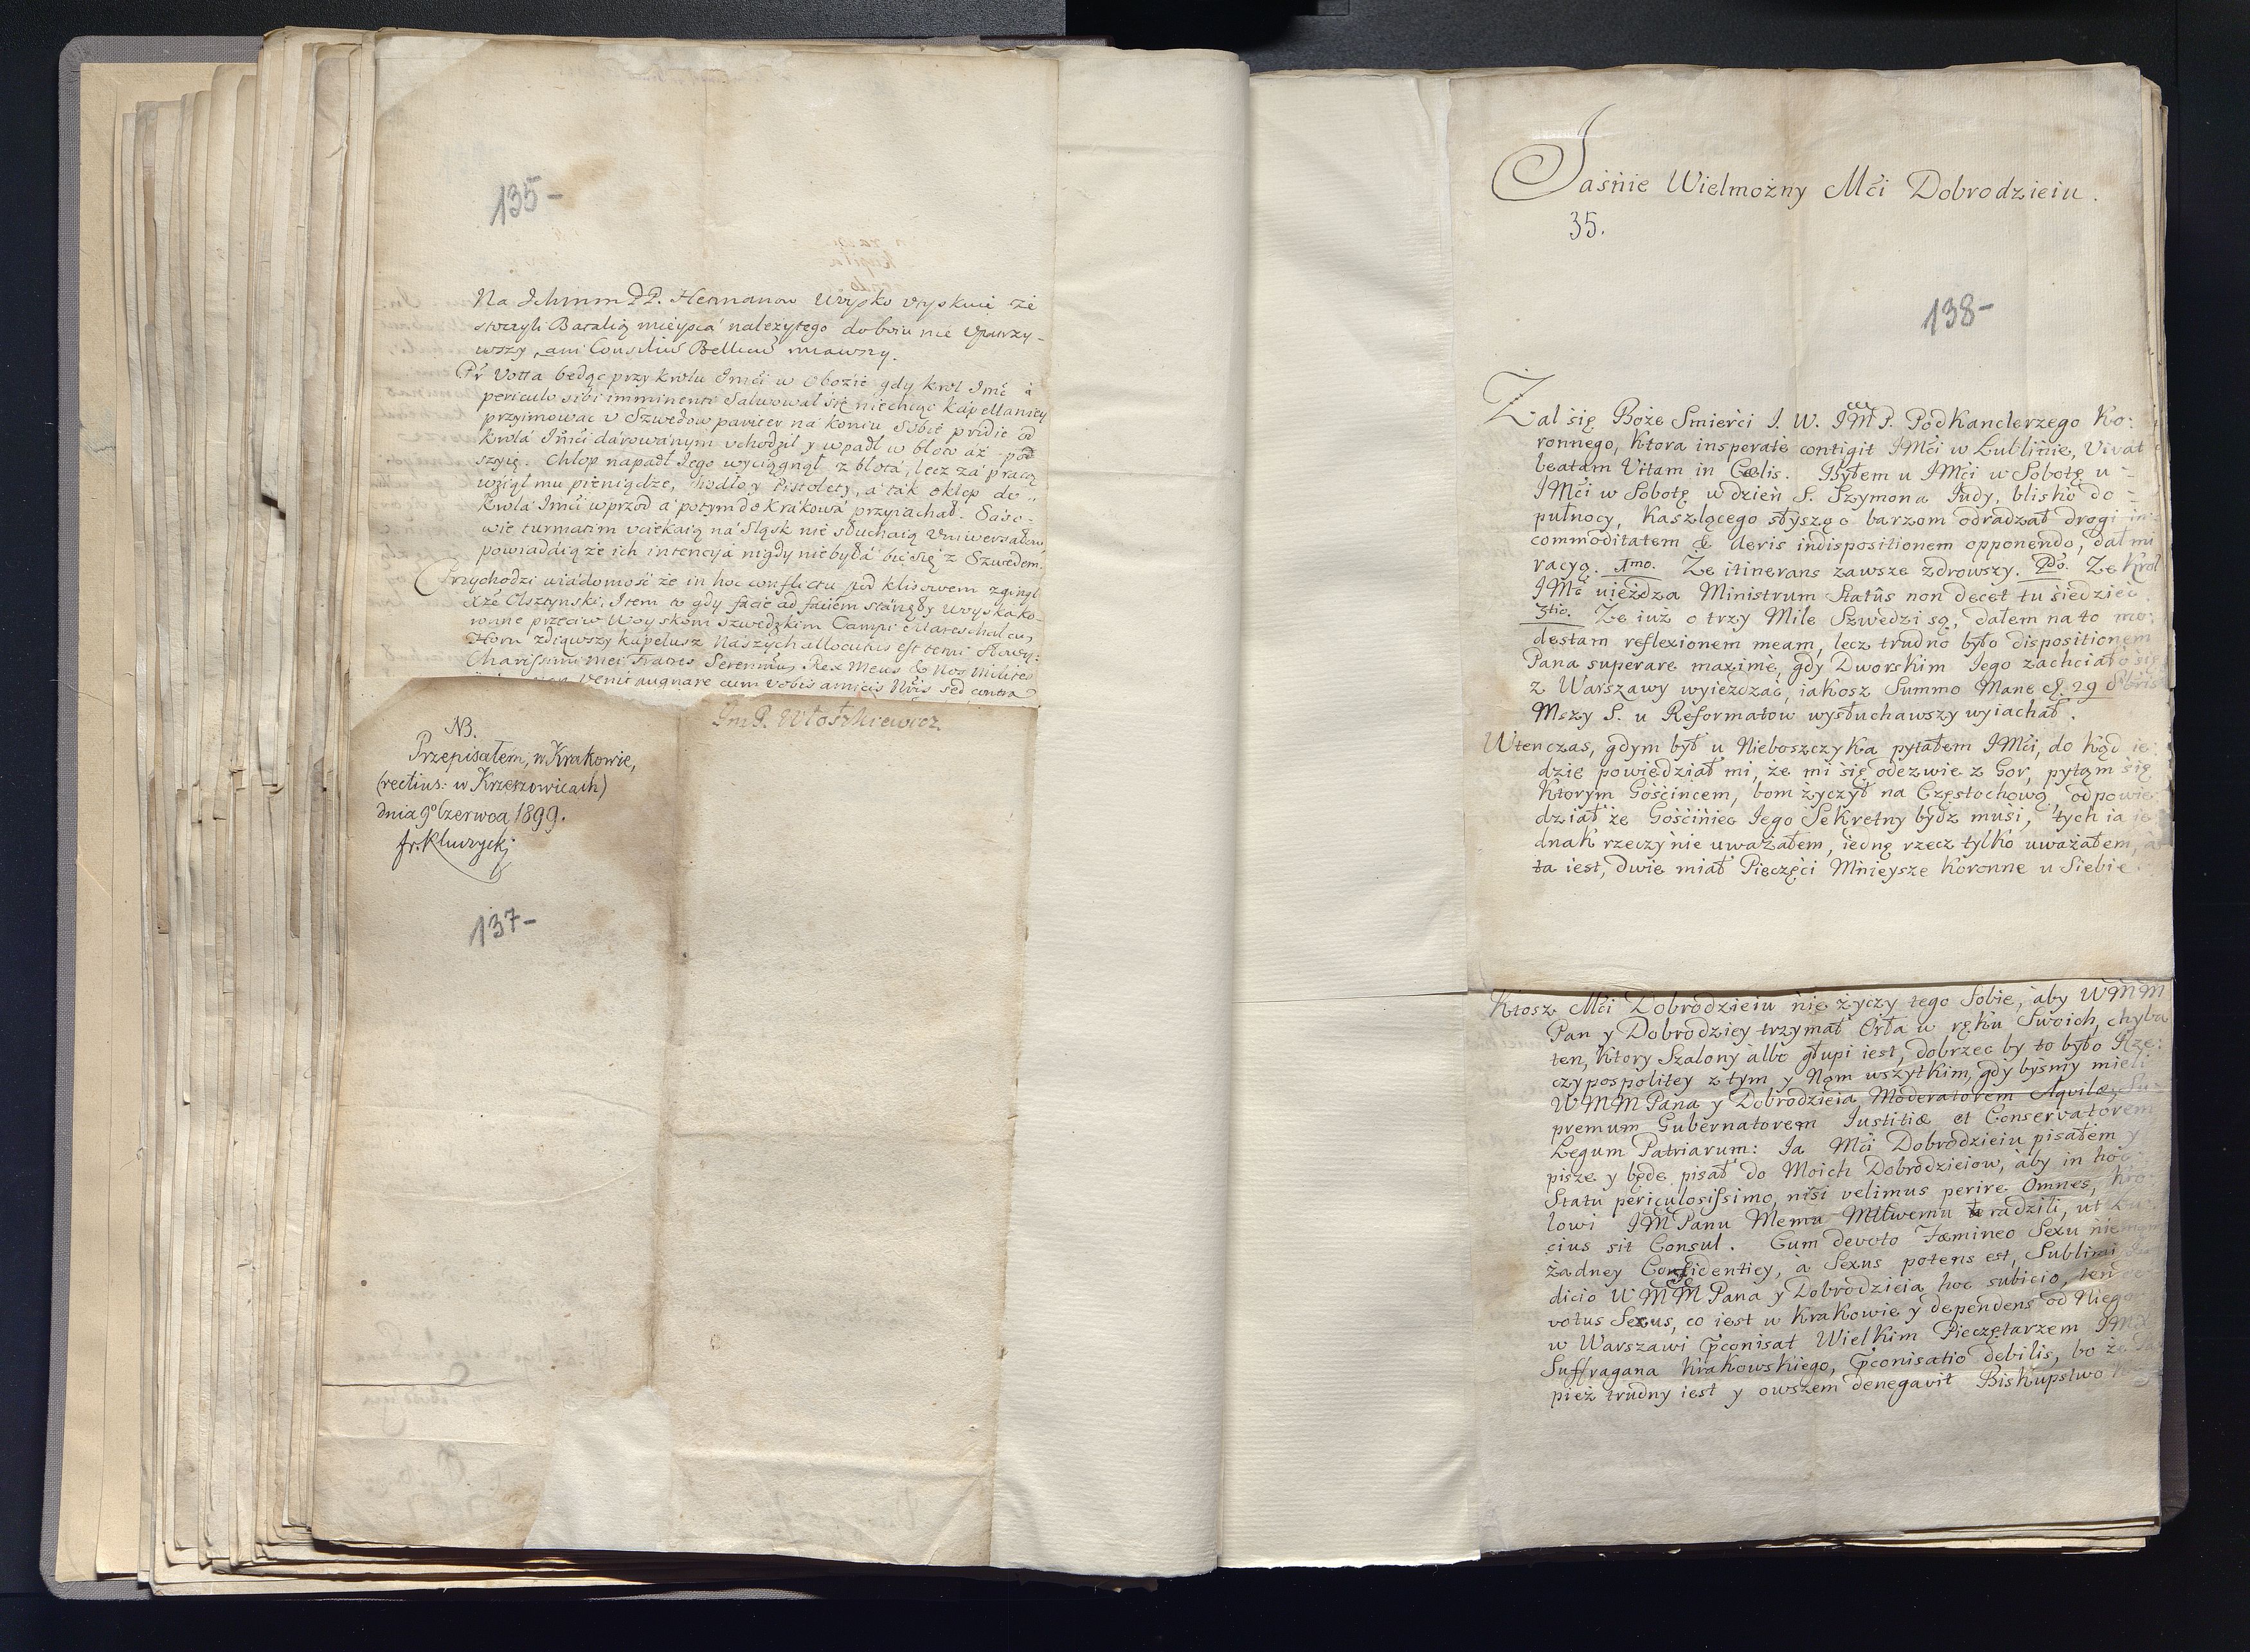 135-
Na Ichmm PP. Hetmanow Woysko uyskuie że
stoczyli Batalią mieysca należytego do boiu nie upatrzy-
wszy, ani Consiliũ Bellicũ miawszy.
Pr Votta będąc przy Krolu Imći w Obozie gdy Krol Imć à
periculo sibi imminenti Salwował się niechcąc Kapellaniey
przyimować u Szwedow pariter na koniu Sobie pridie od
Krola Imći darowanym uchodził y wpadł w błoto aż pod
szyię. Chłop napadł Iego wyciągnął z błota, lecz za pracą
wziął mu pieniądze, Siodło y Pistolety, a tak oklep do
Krola Imći wprzod a potym do Krakowa przyiachał. Saso-
wie turmatim uciekaią na Sląsk nie słuchaią Uniwersałow,
powiadaią że ich intencya nigdy niebyła bić się z Szwedem.
Przychodzi wiadomość że in hoc conflictu pod Klisowem zginął
Xże Olsztynski. Item to gdy facie ad faciem stanęły Woyska Ko-
ronne przeciw Woyskom Szwedzkim Campi Mareschalcus
Horn zdiąwszy kapelusz Naszych allocutus est temi słowy:
Charissimi mei Fratres Serenimus Rex Meus & Nos Milites
veni pugnare cum vobis amicis Nris sed contra
NB.
Przepisałem, w Krakowie,
(rectius: w Krzeszowicach)
dnia 9º Czerwca 1899.
fr. Kluczycki
137-
Im P. Włoszkiewicz.
Jaśnie Wielmożny Mći Dobrodzieiu.
35.
138-
Zal się Boże Smierći I. W. IM P. PodKanclerzego Ko:
ronnego, Ktora insperatè contigit IMći w Lublinie, Vivat
beatam Vitam in Cœlis. Byłem u IMći w Sobotę u -
IMći w Sobotę w dzień S. Szymona Iudy, blisko do -
pułnocy, Kaszlącego słysząc barzom odradzał drogi in
commoditatem & Aeris indispositionem opponendo, dał mi
racyą. 1mo. Że itinerans zawsze zdrowszy. 2do. Że Krol
IMć uieżdza Ministrum Statûs non decet tu siedzieć.
3tio. Że iuż o trzy Mile Szwedzi są, dałem na to mo:
destam reflexionem meam, lecz trudno było dispositionem
Pana superare maximè, gdy Dworskim Iego zachciało się
z Warszawy wyieżczać, iakosz Summo Mane d. 29 8bris
Mszy S. u Reformatow wysłuchawszy wyiachał.
Wtenczas, gdym był u Nieboszczyka pytałem IMći, do kąd ie:
dzie powiedział mi, że mi się odezwie z Gor, pytam się
Ktorym Gośćincem, bom życzył na Częstochowę, odpowie:
dział że Gośćiniec Iego Sekretny bydz musi, tych ia ie
dnak rzeczy nie uważałem, iedną rzecz tylko uważałem, a
ta iest, dwie miał Pieczęći Mnieysze Koronne u Siebie
Ktosz Mći Dobrodzieiu nie życzy tego Sobie, aby WMM
Pan y Dobrodziey trzymał Orła w ręku Swoich, chyba
ten, Ktory Szalony albo głupi iest, dobrzec by to było Rze:
czypospolitey z tym y Nam wszytkim, gdy byśmy mieli
WMM Pana y Dobrodzieia Moderatorem Aquilæ, Su-
premum Gubernatorem Iustitiæ et Conservatorem
Legum Patriarum: Ia Mći Dobrodzieiu pisałem y
pisze y będe pisał do Moich Dobrodzieiow, aby in hoc
Statu periculosissimo, nisi velimus perire Omnes, Kro
lowi IM Panu Memu Mtłwemu radzili, ut
cius sit Consul. Cum devoto Fæmineo Sexu nie mam
żadney Confidentiey, à Sexus potens est, Sublimi
dicio WMM Pana y Dobrodzieia hoc subicio, ten
votus Sexus, co iest w Krakowie y dependens od Niego
w Warszawi p̃conisat Wielkim Pieczętarzem IMX
Suffragana Krakowskiego, p̃conisatio debilis, bo że
pież trudny iest y owszem denegavit Biskupstwo